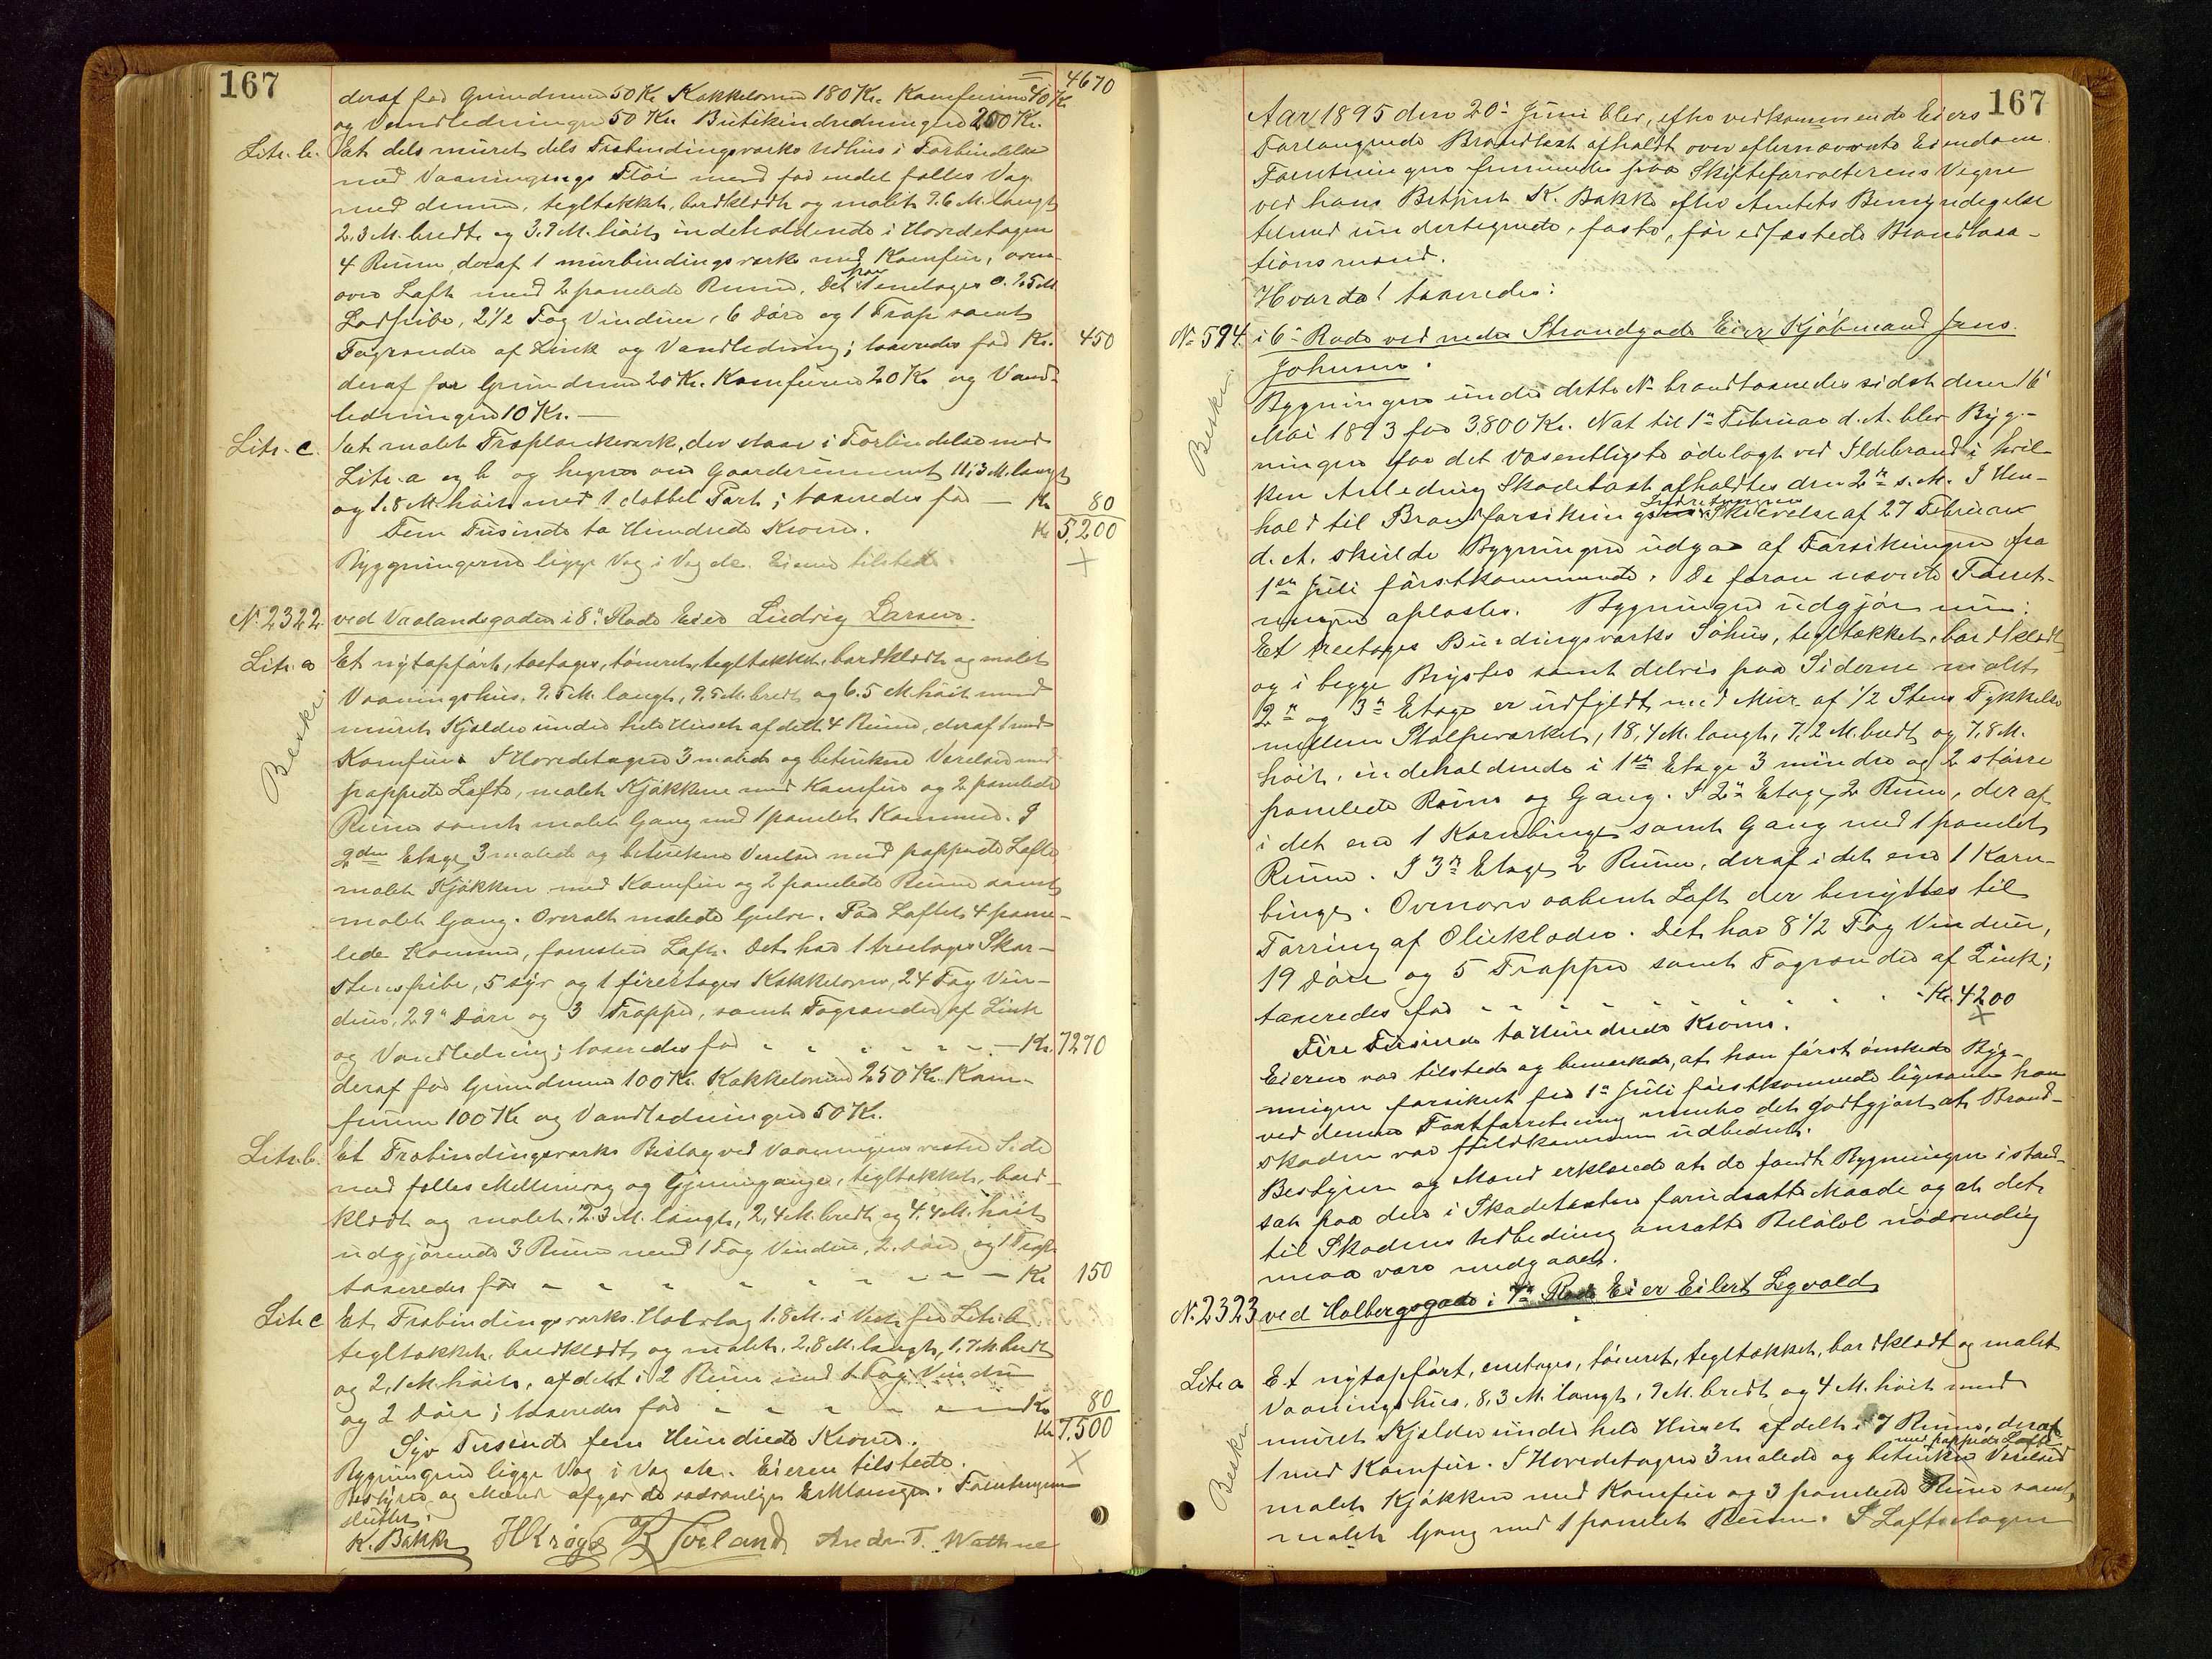 167
= 4670
deraf for Grundmur 50 Kr. Kakkelovne 180 Kr. Komfuirer 40 Kr.
og Vandledningen 50 Kr. Butikindredningen 200 Kr.
Litr. b. Et dels muret dels Træbindingsværks Udhus i Forbindelse
med Vaaningens Flöi med for endel fælles Væg
med denne, tegltækket, bordklædt og malet 9.6 M. langt
2,3 M. bredt og 3.9 M. höit, indeholdende i Hovedetagen
4 Rum, deraf 1 murbindingsværks med Komfur, oven-
over Loft med 2 panelede Rum. Det har 1 enetages
2 1/2 Fag Vinduer, 6 Döre og 1 Trap samt
Tagrender af Zink og Vandledning; taxeredes for Kr. 450
deraf for Grundmur 20 Kr. Komfuren 20 Kr. og Vand-
ledningen 10 Kr. —
Litr. c. Et malet Træplankeværk, der staar i Forbindelse med
Litr. a og b og hegner om Gaardsrummet 11,3 M. langt
og 1.8 M. höit med 1 dobbel Port; taxeredes for — Kr 80
Fem Tusinde to Hundrede Kroner. Kr 5,200
Bygningerne ligge Væg i Væg etc. Eieren tilstede. X
No 2322 ved Vaalandsgaden i 8de Rode Eier Ludvig Larsen.
Litr. a Et nytopfört, toetages, tömret, tegltækket, bordklædt og malet
Beskr.
Vaaningshus, 9.5 M. langt, 9,5 M. bredt og 6.5 M. höit med
muret Kjelder under hele Huset afdelt 4 Rum, deraf 1 med
Komfuir. I Hovedetagen 3 malede og betrukne Værelser med
pappede Lofte, malet Kjökken med Komfuir og 2 panelede
Rum samt malet Gang med 1 panelet Kammer. I
2den Etage 3 malede og betrukne Værelser med pappede Lofte
malet Kjökken med Komfuir og 2 panelede Rum samt
malet Gang. Overalt malede Gulve. Paa Loftet 4 pane-
lede Kammer, forresten Loft. Det har 1 treetages Skor-
stenspibe, 5 syv og 1 fireetages Kakkelovne, 24 Fag Vin-
duer, 29 Döre og 3 Trapper, samt Tagrender af Zink
og Vandledning; taxeredes for - - - - - Kr. 7270
deraf for Grundmur 100 Kr. Kakkelovne 250 Kr. Kom-
furene 100 Kr og Vandledningen 50 Kr.
Litr. b. Et Træbindingsværks Bislag ved Vaaningens vestre Side
med fælles Mellemvæg og Gjennemgange, tegltækket, bord-
klædt og malet, 2.3 M. langt, 2,4 M. bredt og 4.4 M. höit
udgjörende 3 Rum med 1 Fag Vindue, 2 Döre og 1 Trap
taxeredes for - - - - - - - Kr 150
Litr c Et Træbindingsværks Halvtag 1.8 M. i Vest for Litr. b
tegltækket, bordklædt og malet, 2,8 M. langt, 1.7 M. bredt
og 2,1 M. höit, afdelt i 2 Rum med 1 Fag Vindue
og 2 Döre; taxeredes for - - - - - Kr 80
Syv Tusinde fem Hundrede Kroner. Kr 7.500
Bygningerne ligge Væg i Væg etc. Eieren tilstede. X
Bestyrer og Mænd afgav de sædvanlige Erklæringer. Forretningen
sluttet.
K. Bakke H Kröger R Soiland Andr. T. Wathne
167
Aar 1895 den 20de Juni blev, efter vedkommende Eiers
Forlangende Brandtaxt afholdt over efternævnte Eiendom.
Forretningen fremmedes paa Skifteforvalterens Vegne
ved hans Betjent K. Bakke efter Amtets Bemyndigelse
tilmed undertegnede, faste, för edfæstede Brandtaxa-
tionsmænd.
Hvorda! taxeredes:
No 594. i 6te Rode ved nedre Strandgade Eier Kjöbmand Jens
Johnsen.
Beskr.
Bygningen under dette No brandtaxeredes sidst den 16
Mai 1893 for 3.800 Kr. Nat til 1ste Februar d.A. blev Byg-
ningen for det Væsentligste ödelagt ved Ildebrand i hvil-
ken Anledning Skadetaxt afholdtes den 2den s.M. I Hen-
hold til Brandforsikrings Indretningens Skrivelse af 27 Februar
d.A. skulde Bygningen udgaa af Forsikringen fra
1ste Juli förstkommende. De foran nævnte Forret-
ninger oplæstes. Bygningen udgjör nu:
Et treetages Bindingsværks Söhus, tegltækket, bordklædt
og i begge Bryster samt delvis paa Siderne malet
2den og 3die Etage er udfyldt med Mur af 1/2 Stens Tykkelse
mellem Stolpeværket, 18,4 M. langt, 7,2 M. bredt og 7,8 M.
höit, indeholdende i 1ste Etage 3 mindre og 2 större
panelede Rum og Gang. I 2den Etage 2 Rum, deraf
i det ene 1 Kornbinge samt Gang med 1 panelet
Rum. I 3die Etage 2 Rum, deraf i det ene 1 Korn-
binge. Ovenover aabent Loft der benyttes til
Törring af Olieklæder. Det har 8 1/2 Fag Vinduer,
19 Döre og 5 Trapper samt Tagrender af Zink;
taxeredes for - - - - - - - Kr. 4200
Fire Tusinde to Hundrede Kroner. X
Eieren var tilstede og bemærkede, at han först önskede Byg-
ningen forsikret fra 1ste Juli förstkommende ligesom han
ved denne Taxtforretning mente det godtgjort at Brand-
skaden var fuldkommen udbedret.
Bestyrer og Mænd erklærede at de fandt Bygningen istand-
sat paa den i Skadetaxten forudsatte Maade og at det
til Skadens Udbedring ansatte Belöb nödvendig
maa være medgaaet.
No 2323 ved Holbergsgade i 7de Rode Eier Eilert Egvold
Litr a Et nytopfört, enetages, tömret, tegltækket, bordklædt og malet
Beskr.
Vaaningshus, 8,3 M. langt, 9 M. bredt og 4 M. höit med
muret Kjelder under hele Huset afdelt i 7 Rum, deraf
1 med Komfuir. I Hovedetagen 3 malede og betrukne Værelser med pappede Lofte
malet Kjökken med Komfuir og 3 panelede Rum samt
malet Gang med 1 panelet Rum. I Loftsetagen